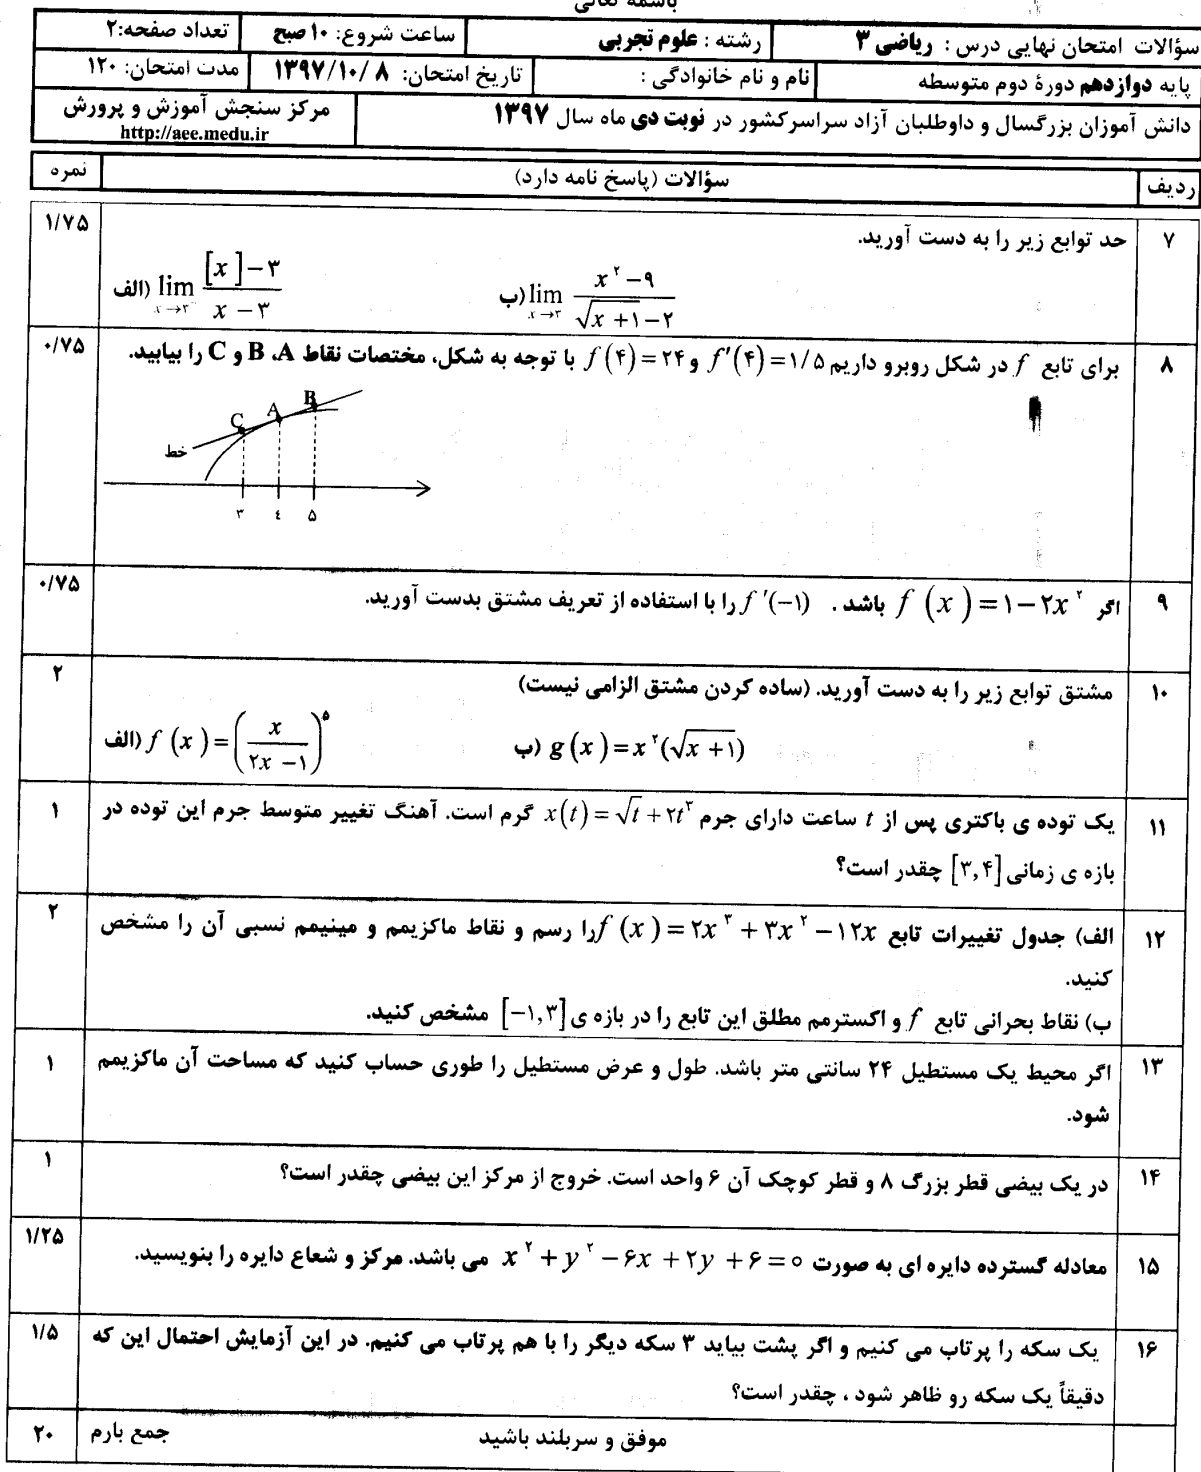 باسمه تعالی
سؤالات امتحان نهایی درس : ریاضی ۳ رشته : علوم تجربی ساعت شروع: ۱۰ صبح تعداد صفحه:۲
پایه دوازدهم دورهٔ دوم متوسطه نام و نام خانوادگی : تاریخ امتحان: ۸ /۱۳۹۷/۱۰ مدت امتحان: ۱۲۰
دانش آموزان بزرگسال و داوطلبان آزاد سراسرکشور در نوبت دی ماه سال ۱۳۹۷ مرکز سنجش آموزش و پرورش
http://aee.medu.ir
ردیف سؤالات (پاسخ نامه دارد) نمره
۷ حد توابع زیر را به دست آورید. ۱/۷۵
الف) lim x→۳⁻ ([x]−۳)/(x−۳) ب) lim x→۳ (x^۲−۹)/(√(x+۱)−۲)
۸ برای تابع f در شکل روبرو داریم f′(۴)=۱/۵ و f(۴)=۲۴ با توجه به شکل، مختصات نقاط A، B و C را بیابید. ۰/۷۵
C A B
خط
۳ ٤ ۵
۹ اگر f (x)=۱−۲x^۲ باشد . f′(−۱) را با استفاده از تعریف مشتق بدست آورید. ۰/۷۵
۱۰ مشتق توابع زیر را به دست آورید. (ساده کردن مشتق الزامی نیست) ۲
الف) f (x)=(x/(۲x−۱))^۵ ب) g(x)=x^۲(√(x+۱))
۱۱ یک توده ی باکتری پس از t ساعت دارای جرم x(t)=√t+۲t^۳ گرم است. آهنگ تغییر متوسط جرم این توده در ۱
بازه ی زمانی [۳,۴] چقدر است؟
۱۲ الف) جدول تغییرات تابع f (x)=۲x^۳+۳x^۲−۱۲x را رسم و نقاط ماکزیمم و مینیمم نسبی آن را مشخص ۲
کنید.
ب) نقاط بحرانی تابع f و اکسترمم مطلق این تابع را در بازه ی [−۱,۳] مشخص کنید.
۱۳ اگر محیط یک مستطیل ۲۴ سانتی متر باشد. طول و عرض مستطیل را طوری حساب کنید که مساحت آن ماکزیمم ۱
شود.
۱۴ در یک بیضی قطر بزرگ ۸ و قطر کوچک آن ۶ واحد است. خروج از مرکز این بیضی چقدر است؟ ۱
۱۵ معادله گسترده دایره ای به صورت x^۲+y^۲−۶x+۲y+۶=۰ می باشد. مرکز و شعاع دایره را بنویسید. ۱/۲۵
۱۶ یک سکه را پرتاب می کنیم و اگر پشت بیاید ۳ سکه دیگر را با هم پرتاب می کنیم. در این آزمایش احتمال این که ۱/۵
دقیقاً یک سکه رو ظاهر شود ، چقدر است؟
موفق و سربلند باشید جمع بارم ۲۰